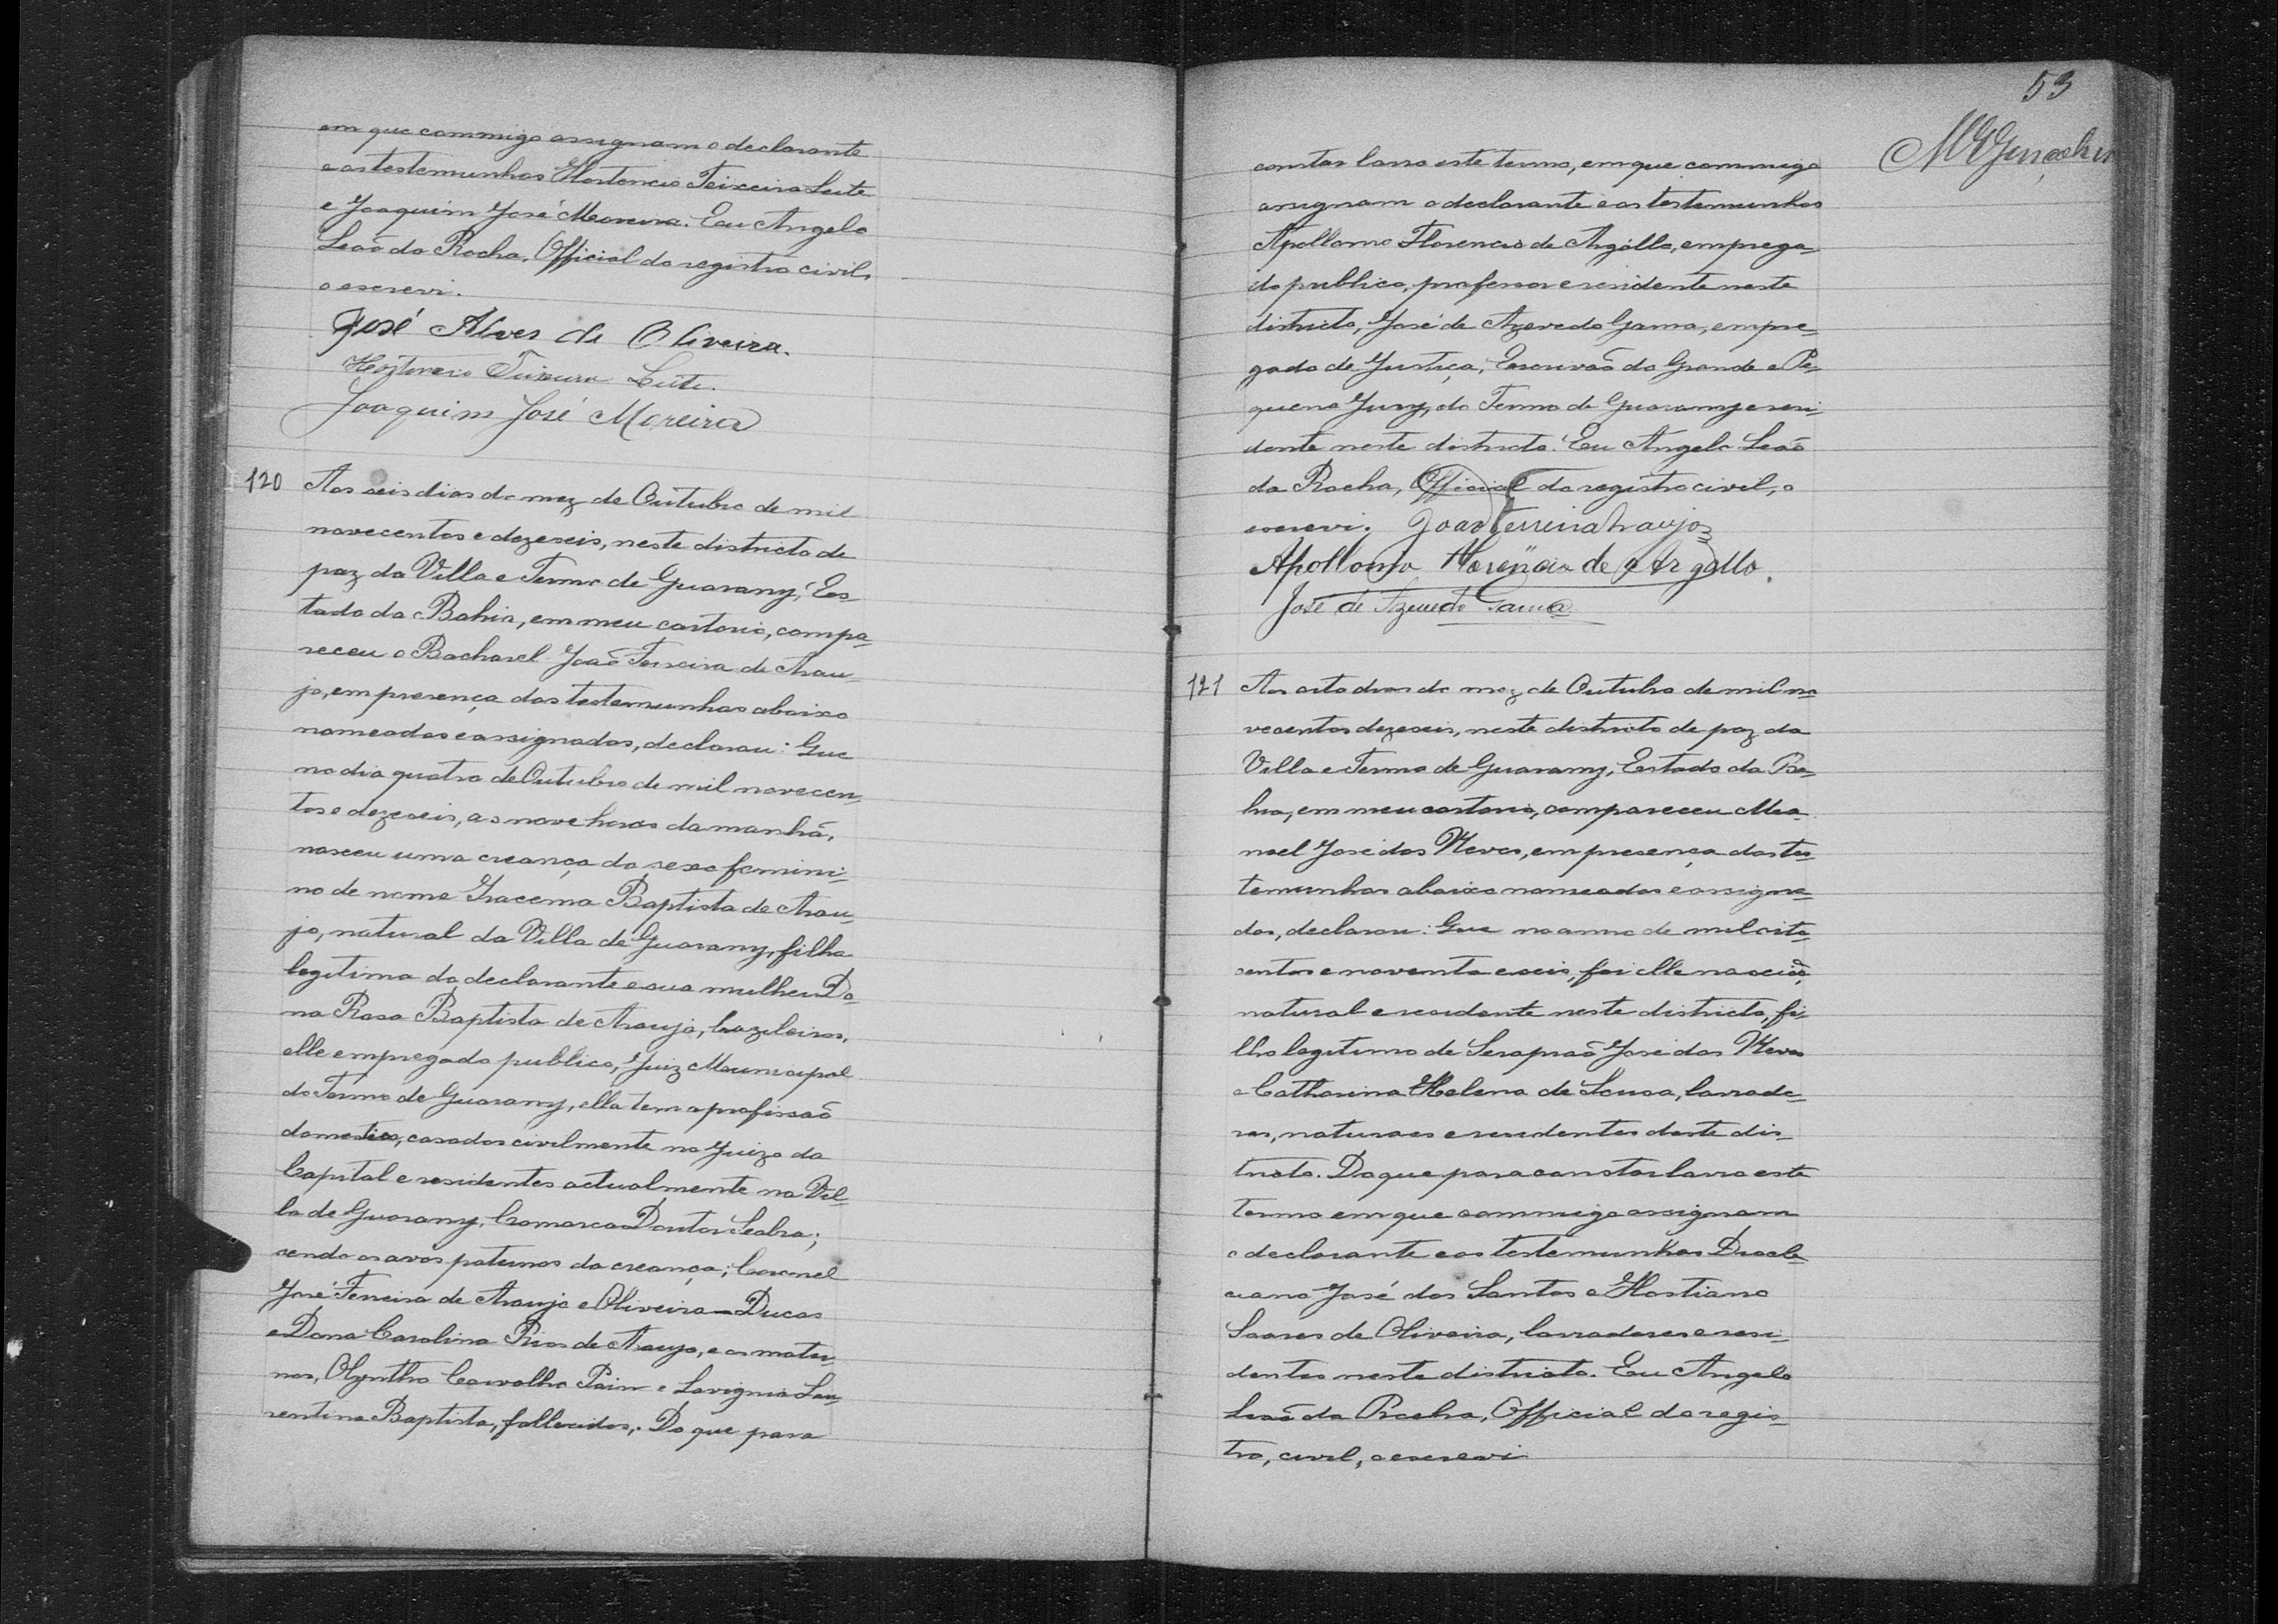 em que commigo assignam o declarante
e as testemunhas Hortencio Teixeira Leite
e Joaquim José Moreira. Eu Angelo
Leão da Rocha, Official do registro civil,
o escrevi.
José Alves de Oliveira.
Hortencio Teixeira Leite.
Joaquim José Moreira
120 Aos seis dias do mez de Outubro de mil
novecentos e dezeseis, neste districto de
paz da Villa e Termo de Guarany, Es-
tado da Bahia, em meu cartorio, compa-
receu o Bacharel João Ferreira de Arau-
jo, em presença das testemunhas abaixo
nomeadas e assignadas, declarou: Que
no dia quatro de Outubro de mil novecen-
tos e dezeseis, as nove horas da manhã,
nasceu uma creança do sexo femini-
no de nome Iracema Baptista de Arau-
jo, natural da Villa de Guarany, filha
legitima do declarante e sua mulher Do-
na Rosa Baptista de Araujo, brazileiros,
elle empregado publico, Juiz Municipal
do Termo de Guarany, ella tem a profissão
domestica, casados civilmente no Juizo da
Capital e residentes actualmente na Vil-
la de Guarany, Comarca Doutor Seabra;
sendo os avós paternos da creança; Coronel
José Ferreira de Araujo e Oliveira Ducas
e Dona Carolina Rios de Araujo, e os mater-
nos, Olyntho Carvalho Paim e Lavignia Lau-
rentina Baptista, fallecidos. Do que para
53
constar lavro este termo, em que commigo
assignam o declarante e as testemunhas
Apollonio Florencio de Argollo, emprega-
do publico, professor e residente neste
districto, José de Azevedo Gama, empre-
gado de Justiça, Escrivão do Grande e Pe-
queno Jury, do Termo de Guarany e resi-
dente neste districto. Eu Angelo Leão
da Rocha, Official do registro civil, o
escrevi. João Ferreira Araujo
Apollonio Florencio de Argollo.
José de Azevedo Gama
121 Aos oito dias do mez de Outubro de mil no-
vecentos dezeseis, neste districto de paz da
Villa e Termo de Guarany, Estado da Ba-
hia, em meu cartorio, compareceu Ma-
noel José das Neves, em presença das tes-
temunhas abaixo nomeadas e assigna-
das, declarou: Que no anno de mil oito-
centos e noventa e seis, foi elle nascido,
natural e residente neste districto, fi-
lho legitimo de Serapião José das Neves
e Catharina Helena de Sousa, lavrado-
res, naturaes e residentes deste dis-
tricto. Do que para constar lavro este
termo em que commigo assignam
o declarante e as testemunhas Diocle-
ciano José dos Santos e Hostiano
Soares de Oliveira, lavradores e resi-
dentes neste districto. Eu Angelo
Leão da Rocha, Official do regis-
tro, civil, o escrevi